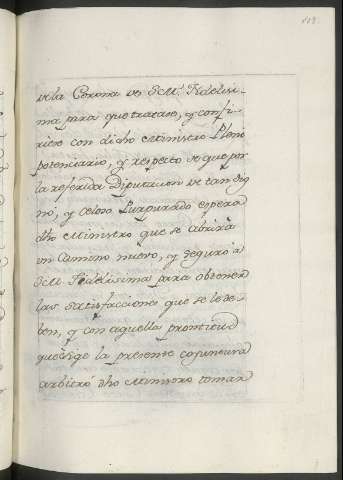 de la Corona de S.M. Fidelisi-
ma para que tratase, y confi-
riese con dicho Ministro Pleni
potenciario, y respecto de que por
la referida Diputacion de tan dig
no, y celoso Purpurado espera
dho Ministro que se abrirà
un camino nuevo, y seguro à
S.M. Fidelisima para obtener
las satisfacciones que se le de-
ben, y con aquella prontitud
que exige la presente conjuntura
arbitró dho Ministro tomar